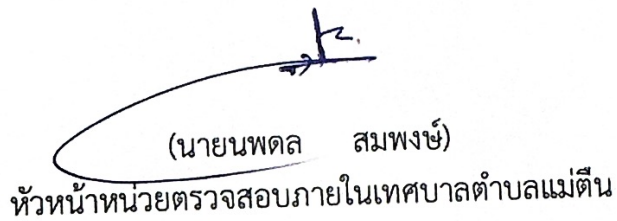 (นายนพดล สมพงษ์)
หัวหน้าหน่วยตรวจสอบภายในเทศบาลตำบลแม่ตืน